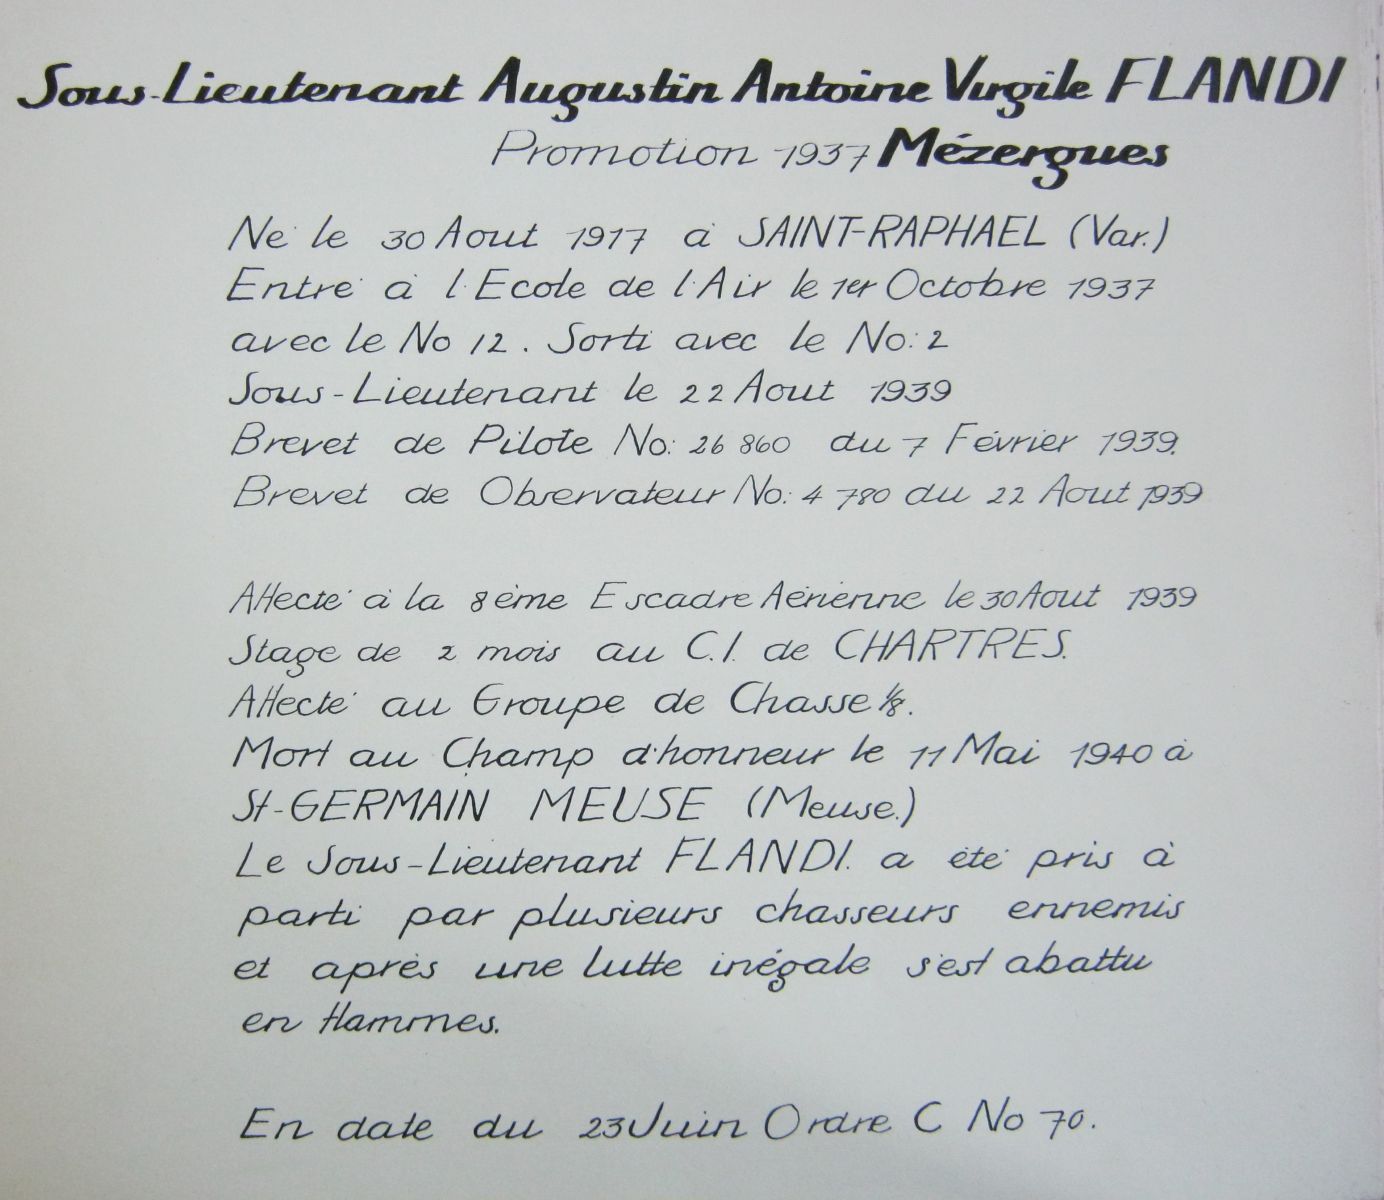 Sous-Lieutenant Augustin Antoine Virgile FLANDI
Promotion 1937 Mézergues
Né le 30 Aout 1917 à SAINT-RAPHAEL (Var.)
Entré à l'Ecole de l'Air le 1er Octobre 1937
avec le No 12. Sorti avec le No: 2
Sous-Lieutenant le 22 Aout 1939
Brevet de Pilote No: 26 860 du 7 Février 1939.
Brevet de Observateur No: 4 780 du 22 Aout 1939
Affecté à la 8ème Escadre Aérienne le 30 Aout 1939
Stage de 2 mois au C.I. de CHARTRES.
Affecté au Groupe de Chasse 1/8.
Mort au Champ d'honneur le 11 Mai 1940 à
St-GERMAIN MEUSE (Meuse.)
Le Sous-Lieutenant FLANDI. a été pris à
parti par plusieurs chasseurs ennemis
et après une lutte inégale s'est abattu
en flammes.
En date du 23 Juin Ordre C No 70.